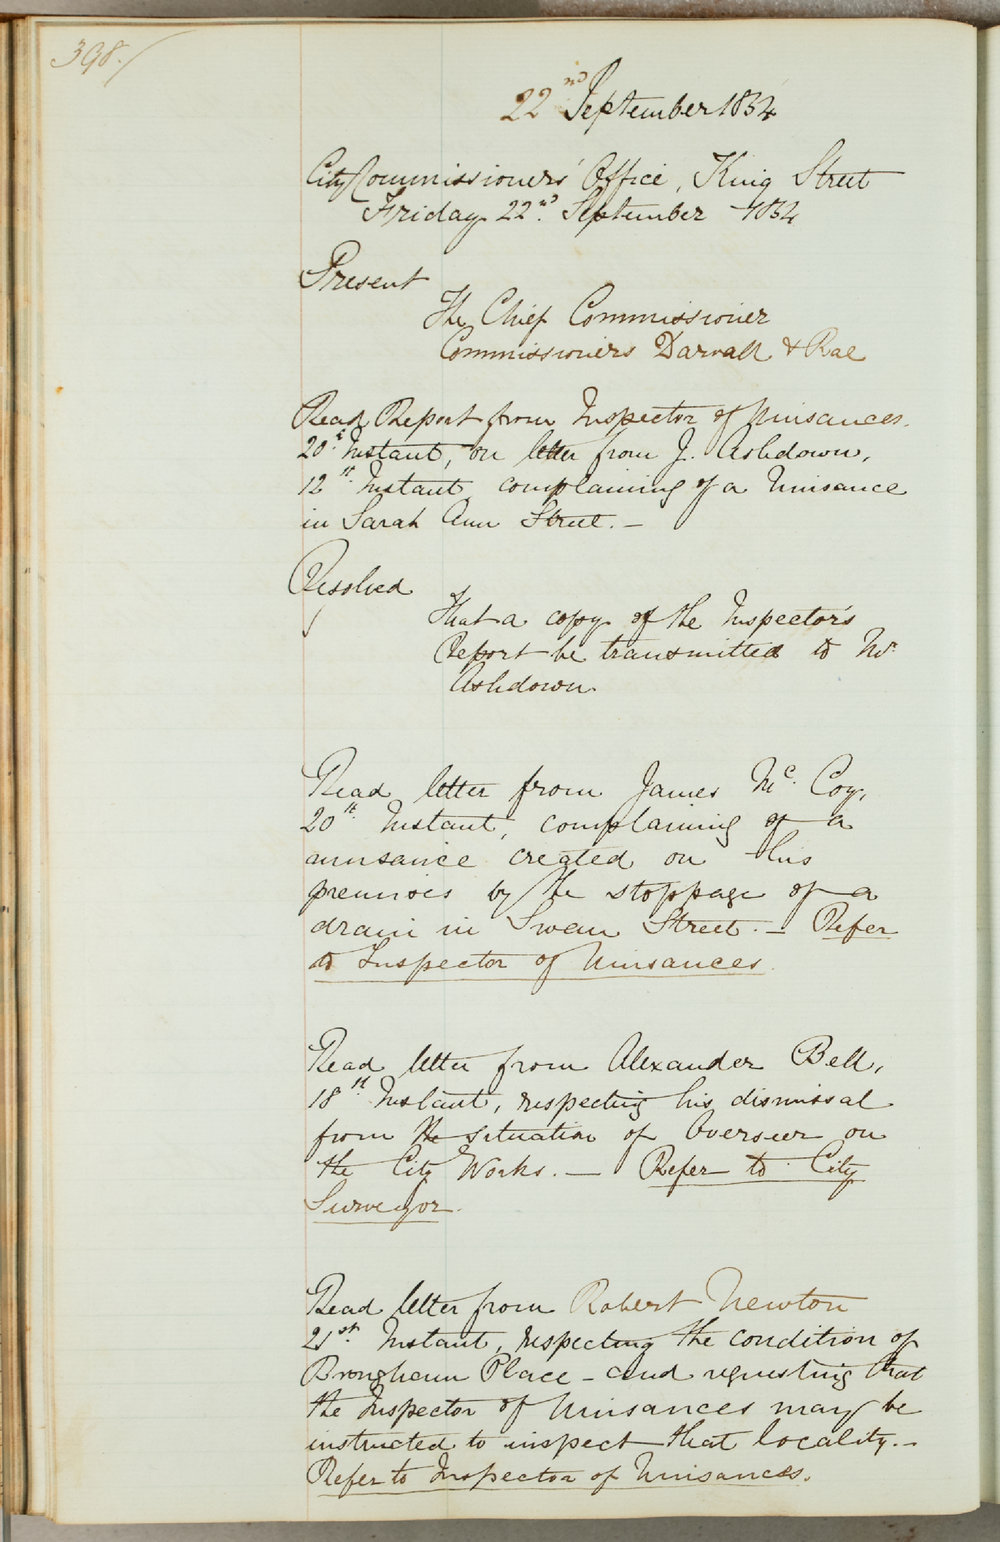 398.
22nd September 1854
City Commissioners' Office, King Street
Friday 22nd. September 1854
Present
The Chief Commissioner
Commissioners Darvall & Rae
Read Report from Inspector of Nuisances.
20th Instant, on letter from J. Ashdown,
12th. Instant complaining of a Nuisance
in Sarah Ann Street. —
Resolved
That a copy of the Inspector's
Report be transmitted to Mr.
Ashdown.
Read letter from James Mc. Coy,
20th. Instant, complaining of a
nuisance created on his
premises by the stoppage of a
drain in Swan Street. — Refer
to Inspector of Nuisances.
Read letter from Alexander Bell,
18th. Instant, respecting his dismissal
from the situation of Overseer on
the City Works. — Refer to City
Surveyor.
Read letter from Robert Newton
21st. Instant, respecting the condition of
Brougham Place – and requesting that
the Inspector of Nuisances may be
instructed to inspect that locality. –
Refer to Inspector of Nuisances.